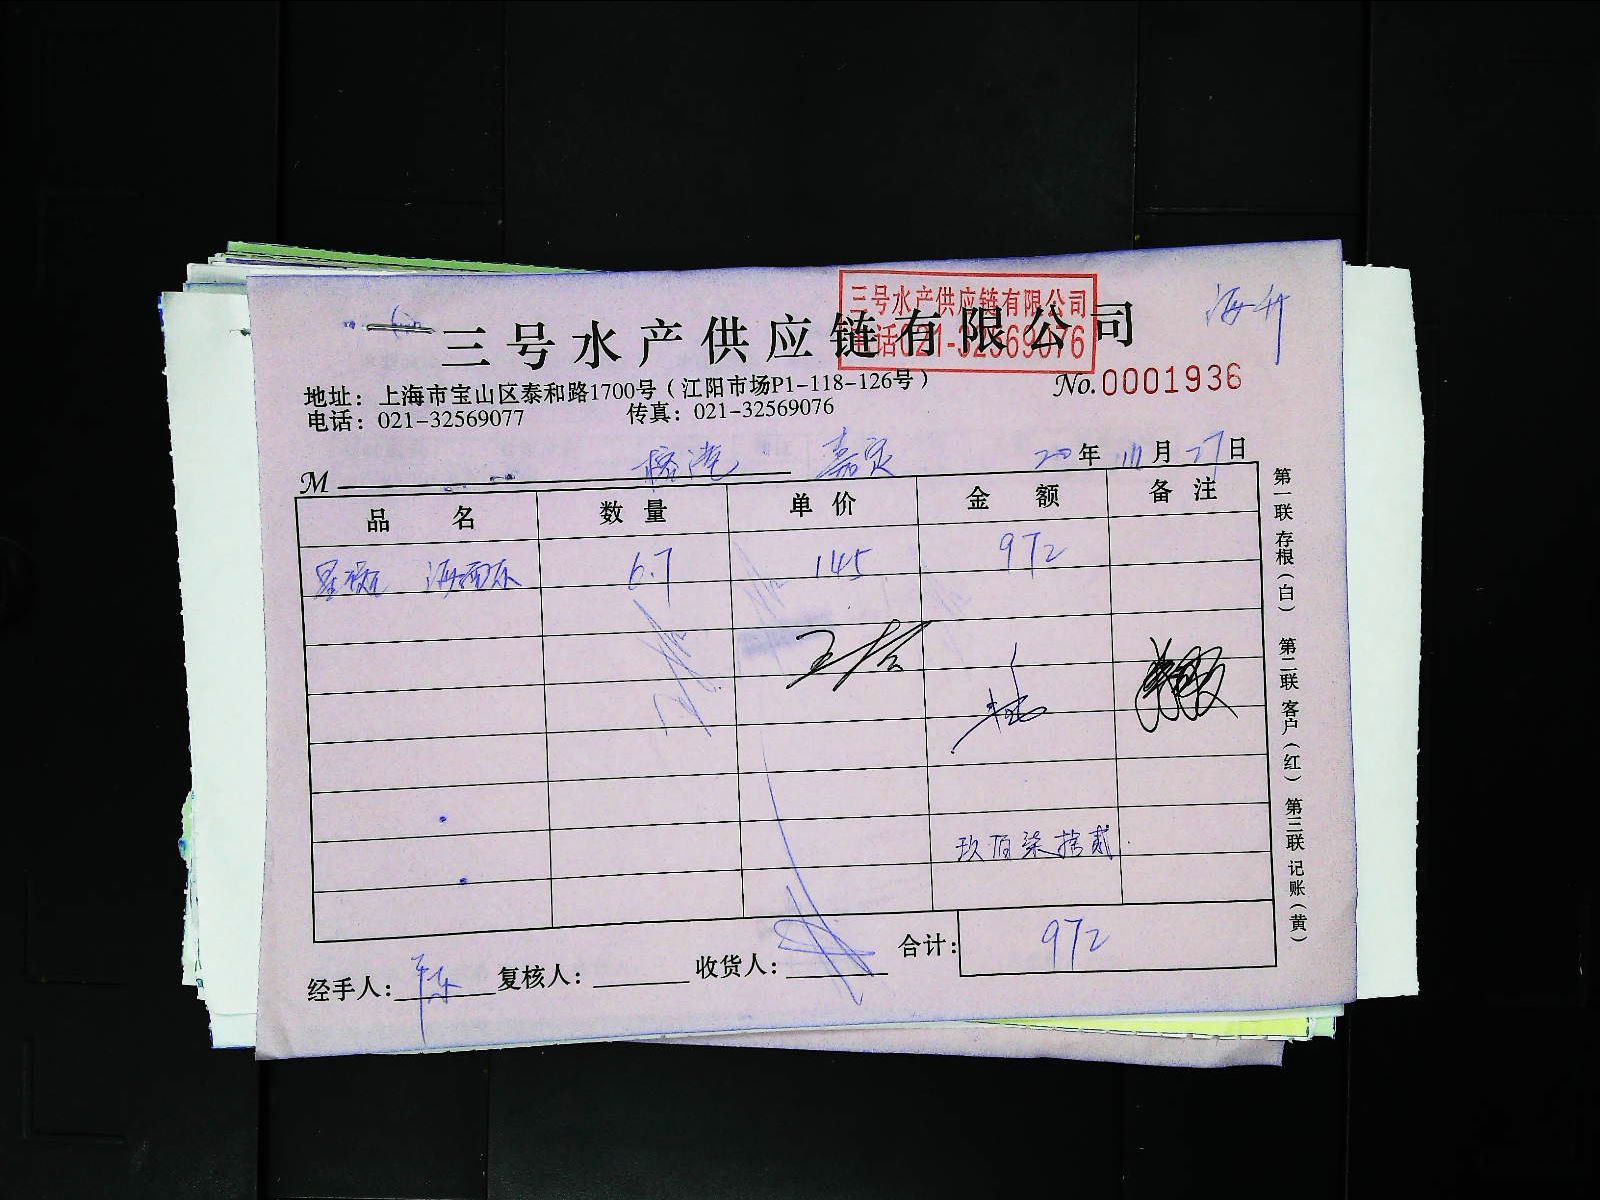 三号水产供应链有限公司
电话021-32569076
三号水产供应链有限公司
地址：上海市宝山区泰和路1700号（江阳市场P1-118-126号）
No.0001936
电话：021-32569077 传真：021-32569076
M 嘉定 20年 月 27日
品名 数量 单价 金额 备注
6.7 145 972
玖佰柒拾贰
合计： 972
经手人： 复核人： 收货人：
第一联 存根（白） 第二联 客户（红） 第三联 记账（黄）